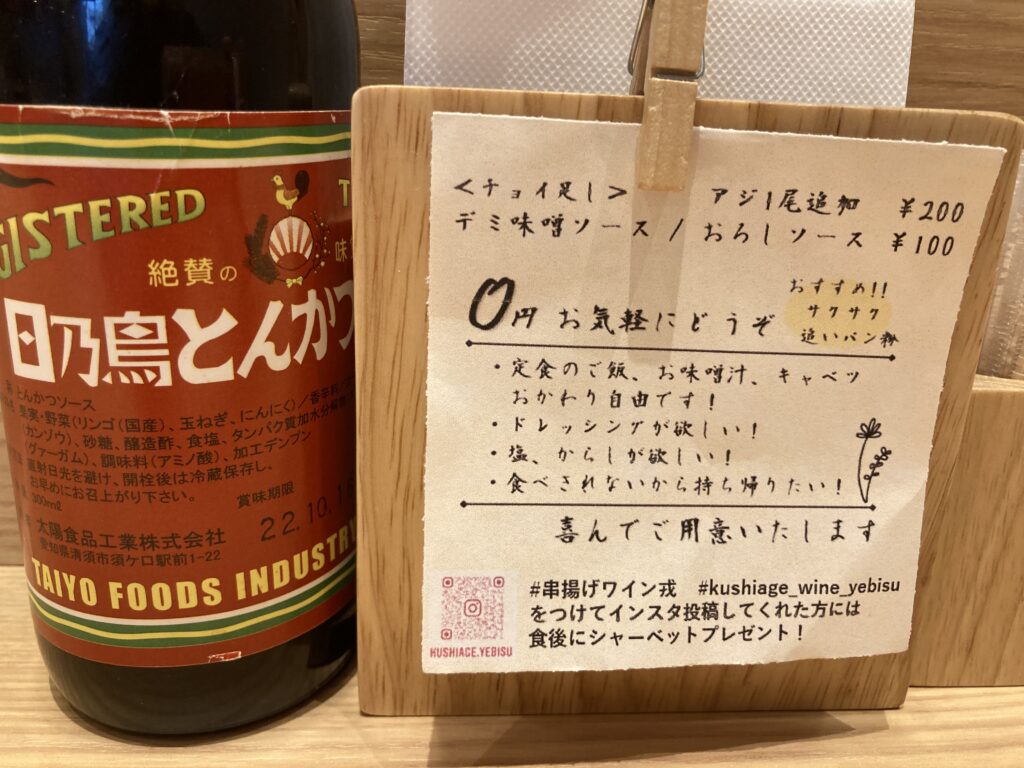 GISTERED
T
絶賛の
味
日乃鳥とんかつ
とんかつソース
果実・野菜(リンゴ(国産)、玉ねぎ、にんにく)/香辛料
(カンゾウ)、砂糖、醸造酢、食塩、タンパク質加水分解物
(グァーガム)、調味料(アミノ酸)、加工デンプン
直射日光を避け、開栓後は冷蔵保存し、
お早めにお召上がり下さい。
300ml
賞味期限
22.10.1
太陽食品工業株式会社
愛知県清須市須ケ口駅前1-22
TAIYO FOODS INDUSTRY
<チョイ足し> アジ1尾追加 ¥200
デミ味噌ソース / おろしソース ¥100
0円 お気軽にどうぞ
おすすめ!!
サクサク
追いパン粉
・定食のご飯、お味噌汁、キャベツ
おかわり自由です!
・ドレッシングが欲しい!
・塩、からしが欲しい!
・食べきれないから持ち帰りたい!
喜んでご用意いたします
#串揚げワイン戎 #kushiage_wine_yebisu
をつけてインスタ投稿してくれた方には
食後にシャーベットプレゼント!
KUSHIAGE.YEBISU